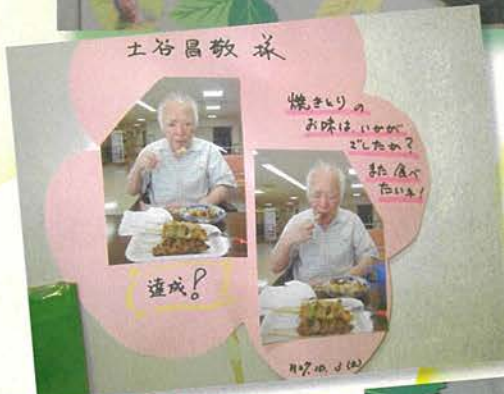 土谷昌敬 様
焼きとりの
お味は、いかが
でしたか?
また 食べ
たいネ!
達成!
H27.10.3(土)